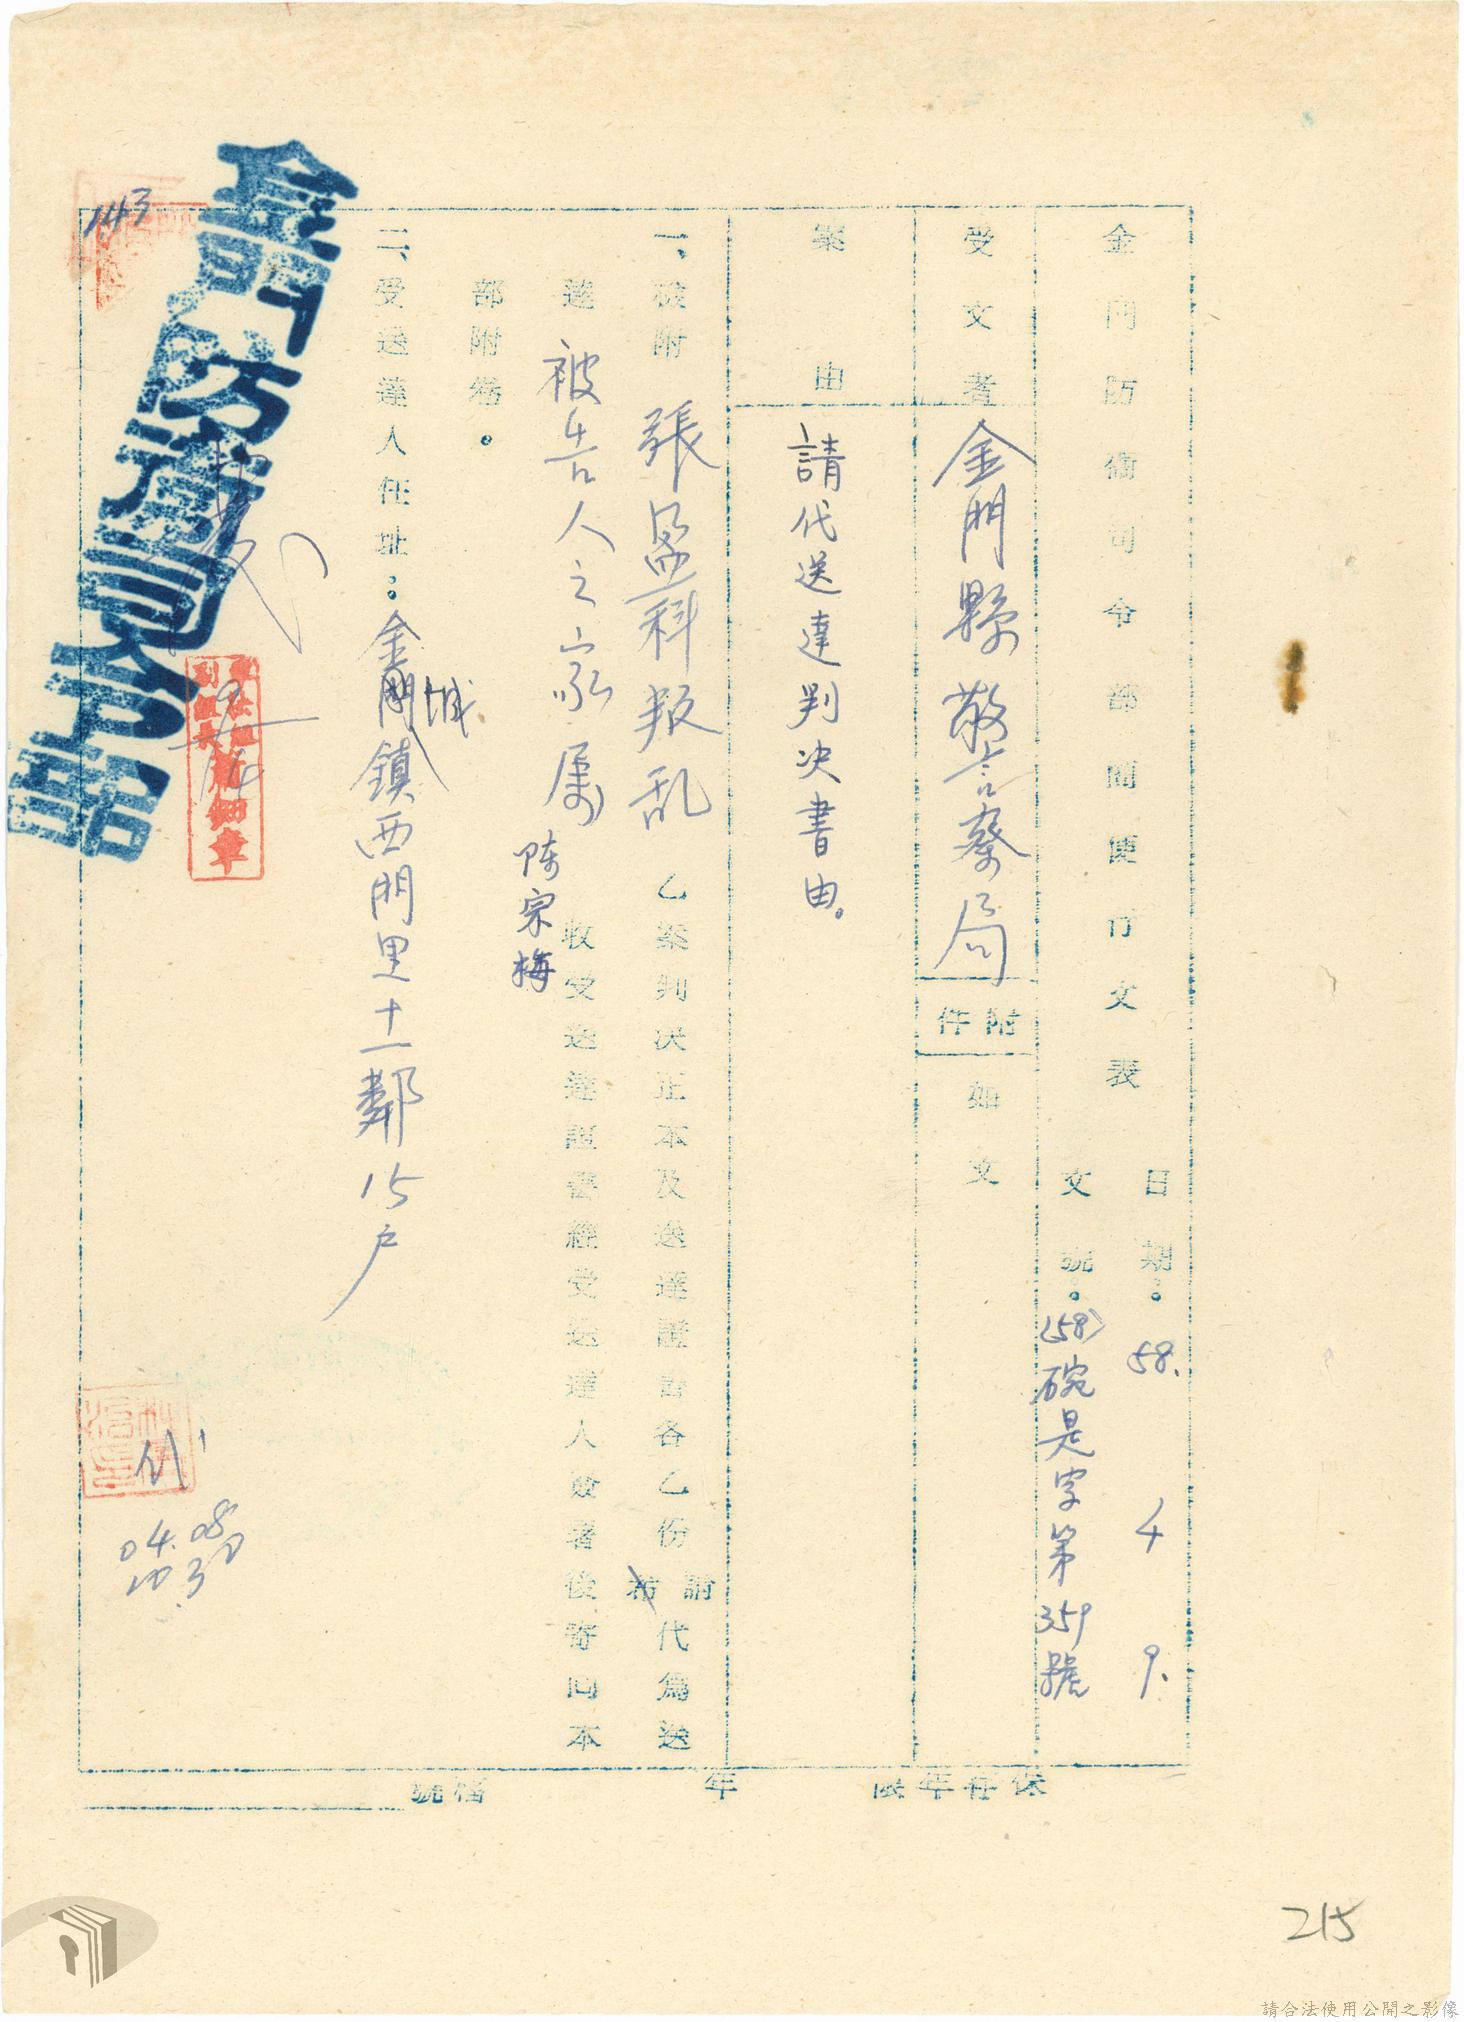 金門防衛司令部簡便行文表
日期：58. 4 9.
文號：(58)碗是字第359號
受文者 金門縣警察局
附件 如文
案由 請代送達判決書由。
一、檢附 張盈科叛乱 乙案判決正本及送達證書各乙份請代為送
達 被告人之家属陈宗梅 收受送達證書經受送達人簽署後寄回本
部附卷。
二、受送達人住址：金城鎮西門里十一鄰15户
金門防衛司令部
143
04.08
1030
保存年限 年 檔號
215
請合法使用公開之影像